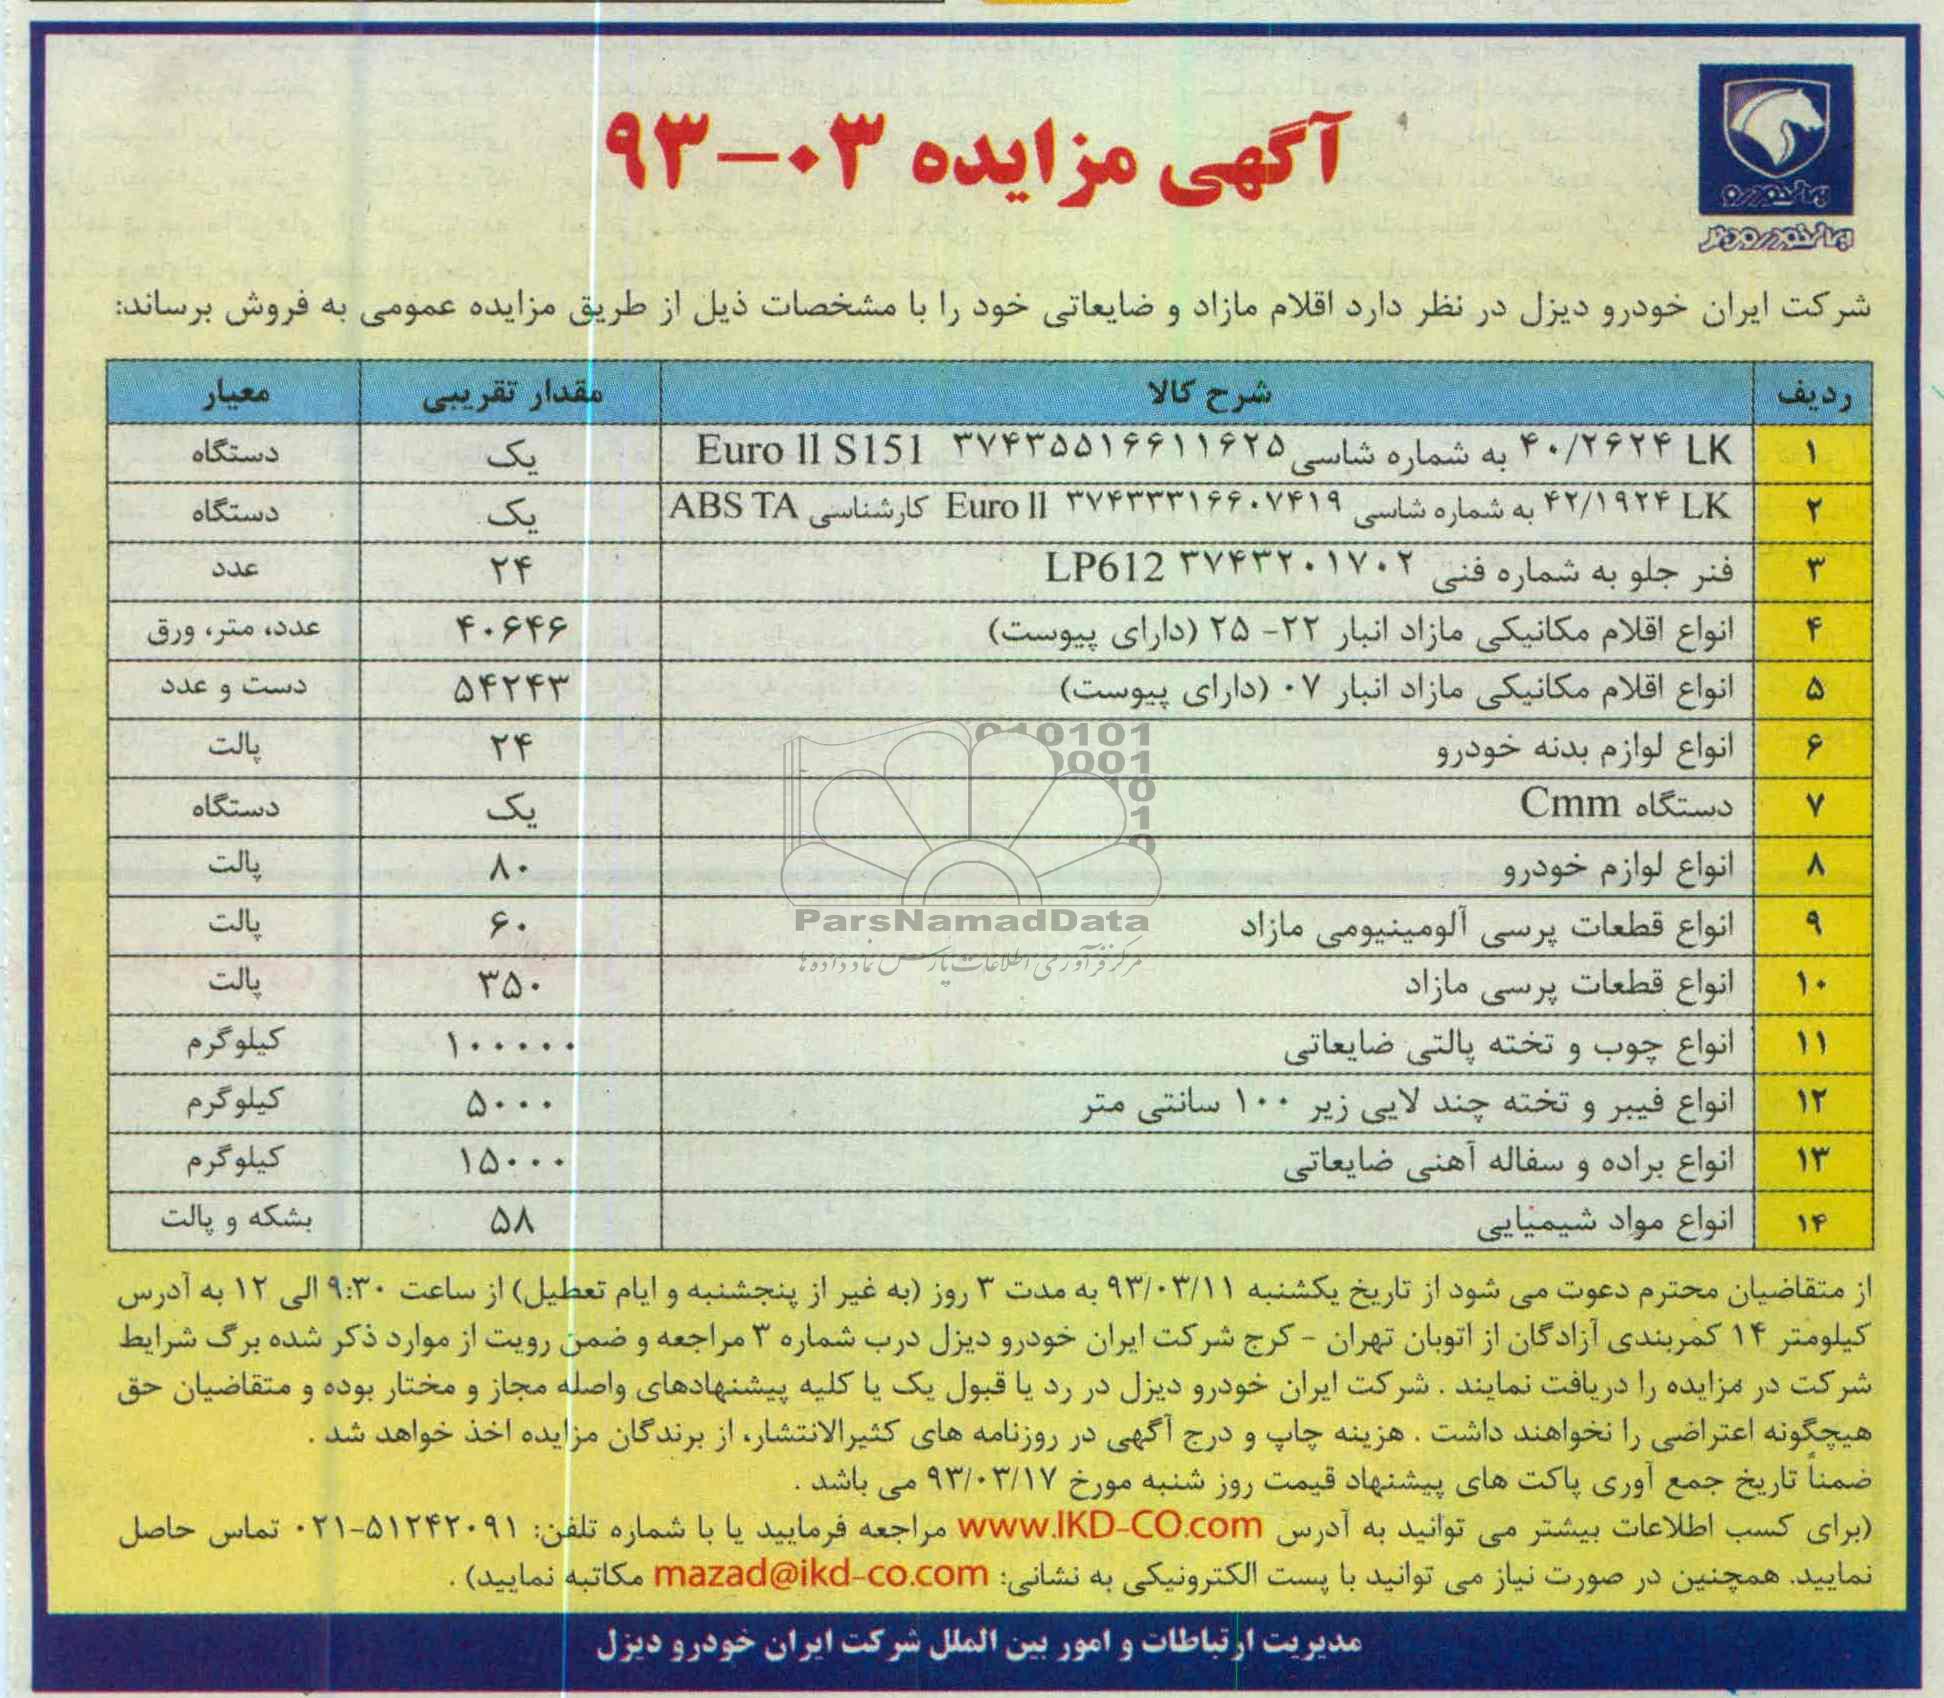 ایران خودرو
ایران خودرو دیزل
آگهی مزایده ۰۳-۹۳
شرکت ایران خودرو دیزل در نظر دارد اقلام مازاد و ضایعاتی خود را با مشخصات ذیل از طریق مزایده عمومی به فروش برساند:
ردیف شرح کالا مقدار تقریبی معیار
۱ LK ۴۰/۲۶۲۴ به شماره شاسی ۳۷۴۳۵۵۱۶۶۱۱۶۲۵ Euro II S151 یک دستگاه
۲ LK ۴۲/۱۹۲۴ به شماره شاسی ۳۷۴۳۳۳۱۶۶۰۷۴۱۹ Euro II کارشناسی ABS TA یک دستگاه
۳ فنر جلو به شماره فنی ۳۷۴۳۲۰۱۷۰۲ LP612 ۲۴ عدد
۴ انواع اقلام مکانیکی مازاد انبار ۲۲- ۲۵ (دارای پیوست) ۴۰۶۴۶ عدد، متر، ورق
۵ انواع اقلام مکانیکی مازاد انبار ۰۷ (دارای پیوست) ۵۴۲۴۳ دست و عدد
۶ انواع لوازم بدنه خودرو ۲۴ پالت
۷ دستگاه Cmm یک دستگاه
۸ انواع لوازم خودرو ۸۰ پالت
۹ انواع قطعات پرسی آلومینیومی مازاد ۶۰ پالت
۱۰ انواع قطعات پرسی مازاد ۳۵۰ پالت
۱۱ انواع چوب و تخته پالتی ضایعاتی ۱۰۰۰۰۰ کیلوگرم
۱۲ انواع فیبر و تخته چند لایی زیر ۱۰۰ سانتی متر ۵۰۰۰ کیلوگرم
۱۳ انواع براده و سفاله آهنی ضایعاتی ۱۵۰۰۰ کیلوگرم
۱۴ انواع مواد شیمیایی ۵۸ بشکه و پالت
ParsNamadData
مرکز فرآوری اطلاعات پارس نماد داده ها
از متقاضیان محترم دعوت می شود از تاریخ یکشنبه ۹۳/۰۳/۱۱ به مدت ۳ روز (به غیر از پنجشنبه و ایام تعطیل) از ساعت ۹:۳۰ الی ۱۲ به آدرس
کیلومتر ۱۴ کمربندی آزادگان از اتوبان تهران - کرج شرکت ایران خودرو دیزل درب شماره ۳ مراجعه و ضمن رویت از موارد ذکر شده برگ شرایط
شرکت در مزایده را دریافت نمایند . شرکت ایران خودرو دیزل در رد یا قبول یک یا کلیه پیشنهادهای واصله مجاز و مختار بوده و متقاضیان حق
هیچگونه اعتراضی را نخواهند داشت . هزینه چاپ و درج آگهی در روزنامه های کثیرالانتشار، از برندگان مزایده اخذ خواهد شد .
ضمناً تاریخ جمع آوری پاکت های پیشنهاد قیمت روز شنبه مورخ ۹۳/۰۳/۱۷ می باشد .
(برای کسب اطلاعات بیشتر می توانید به آدرس www.IKD-CO.com مراجعه فرمایید یا با شماره تلفن: ۵۱۲۴۲۰۹۱-۰۲۱ تماس حاصل
نمایید. همچنین در صورت نیاز می توانید با پست الکترونیکی به نشانی: mazad@ikd-co.com مکاتبه نمایید) .
مدیریت ارتباطات و امور بین الملل شرکت ایران خودرو دیزل